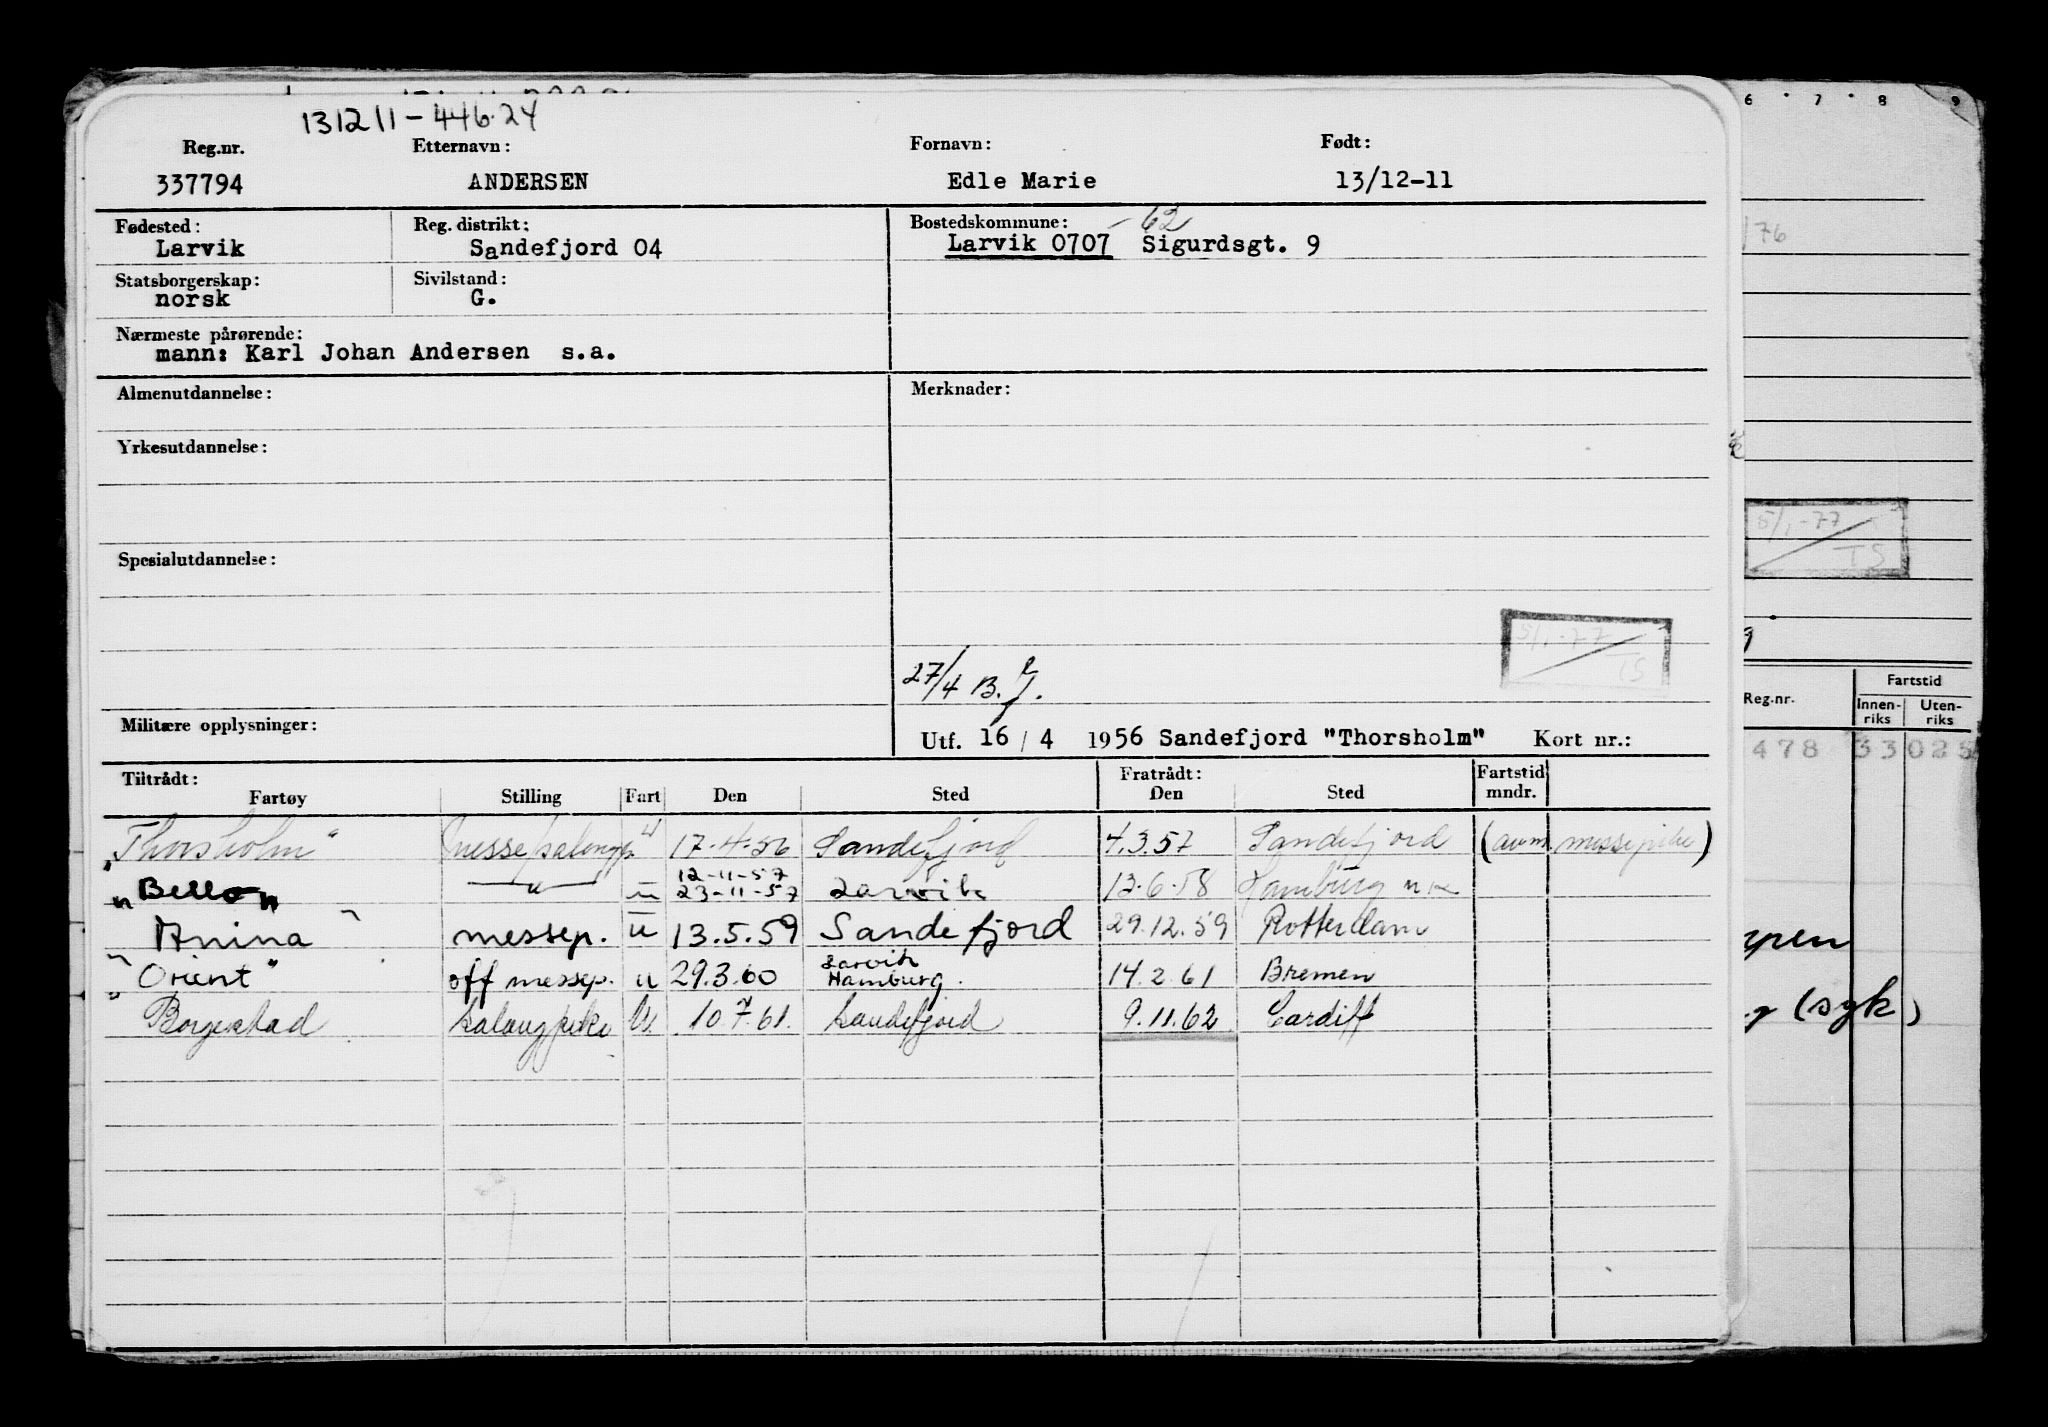 131211-446.24
Reg.nr. Etternavn: Fornavn: Født:
337794 ANDERSEN Edle Marie 13/12-11
Fødested: Reg. distrikt: Bostedskommune: -62
Larvik Sandefjord 04 Larvik 0707 Sigurdsgt. 9
Statsborgerskap: Sivilstand:
norsk G.
Nærmeste pårørende:
mann: Karl Johan Andersen s.a.
Almenutdannelse: Merknader:
Yrkesutdannelse:
Spesialutdannelse:
5/1-77
TS
27/4 B.
Militære opplysninger:
Utf. 16/4 1956 Sandefjord "Thorsholm" Kort nr.:
Tiltrådt: Fratrådt: Fartstid
Fartøy Stilling Fart Den Sted Den Sted mndr.
"Thorsholm" messe/salongp. u 17.4.56 Sandefjord 4.3.57 Sandefjord (avm messepike)
12-11-57
"Bello" —"— u 23-11-57 Larvik 13.6.58 Hamburg
"Anina" messep. u 13.5.59 Sandefjord 29.12.59 Rotterdam
Larvik
"Orient" off messep. u 29.3.60 Hamburg. 14.2.61 Bremen
"Borgestad" Salongpike U. 10.7.61. Sandefjord 9.11.62 Cardiff
6 7 8 9
/76
5/1-77
TS
Fartstid
Reg.nr. Innen- Uten-
riks riks
478 33 025
(syk)